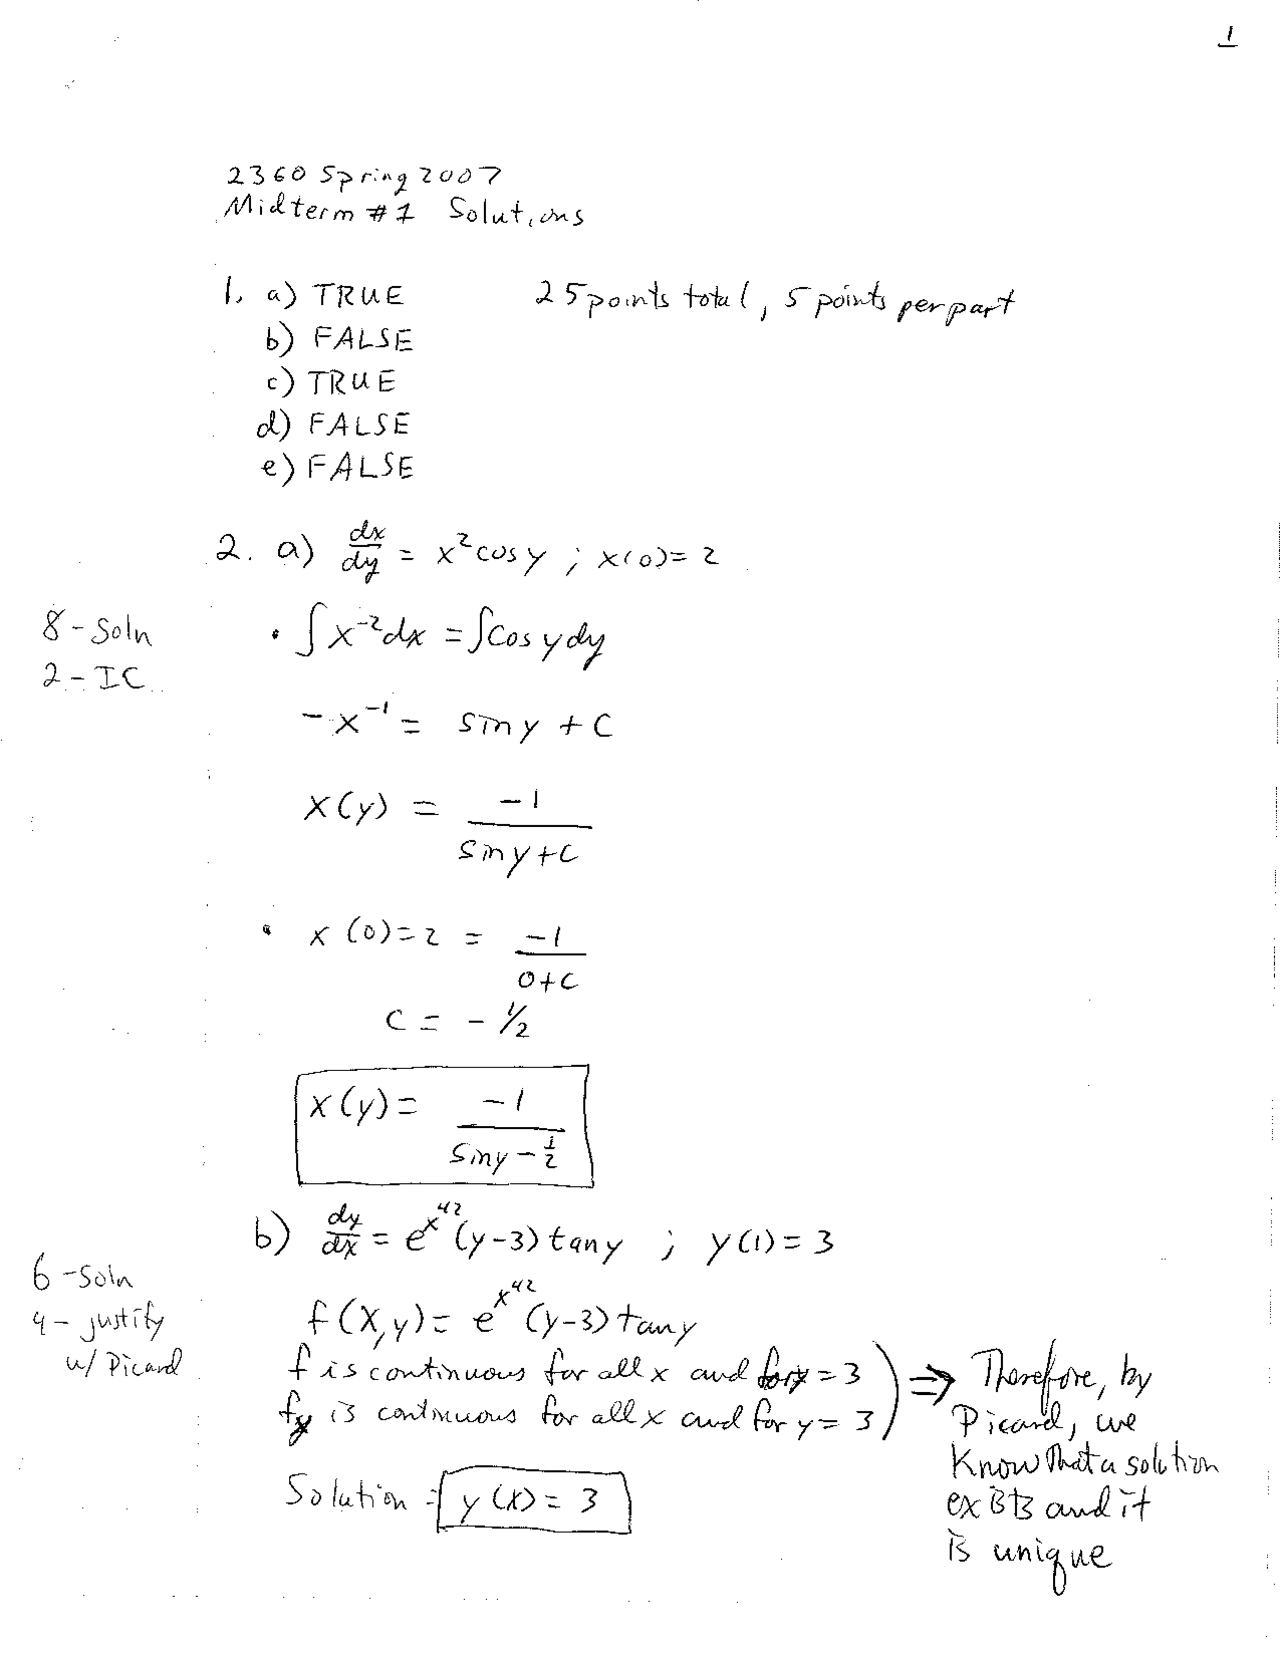 1
2360 Spring 2007
Midterm #1 Solutions
1. a) TRUE 25 points total, 5 points per part
b) FALSE
c) TRUE
d) FALSE
e) FALSE
2. a) dx/dy = x² cos y ; x(0) = 2
8 - Soln
2 - IC
• ∫ x⁻² dx = ∫ cos y dy
- x⁻¹ = sin y + C
x(y) = -1/(sin y + C)
• x(0) = 2 = -1/(0 + C)
C = - 1/2
x(y) = -1/(sin y - 1/2)
b) dy/dx = e^(x^42) (y-3) tan y ; y(1) = 3
6 - Soln
4 - justify
w/ Picard
f(x,y) = e^(x^42) (y-3) tan y
f is continuous for all x and for y = 3
f_y is continuous for all x and for y = 3
⇒ Therefore, by
Picard, we
know that a solution
exists and it
is unique
Solution = y(x) = 3